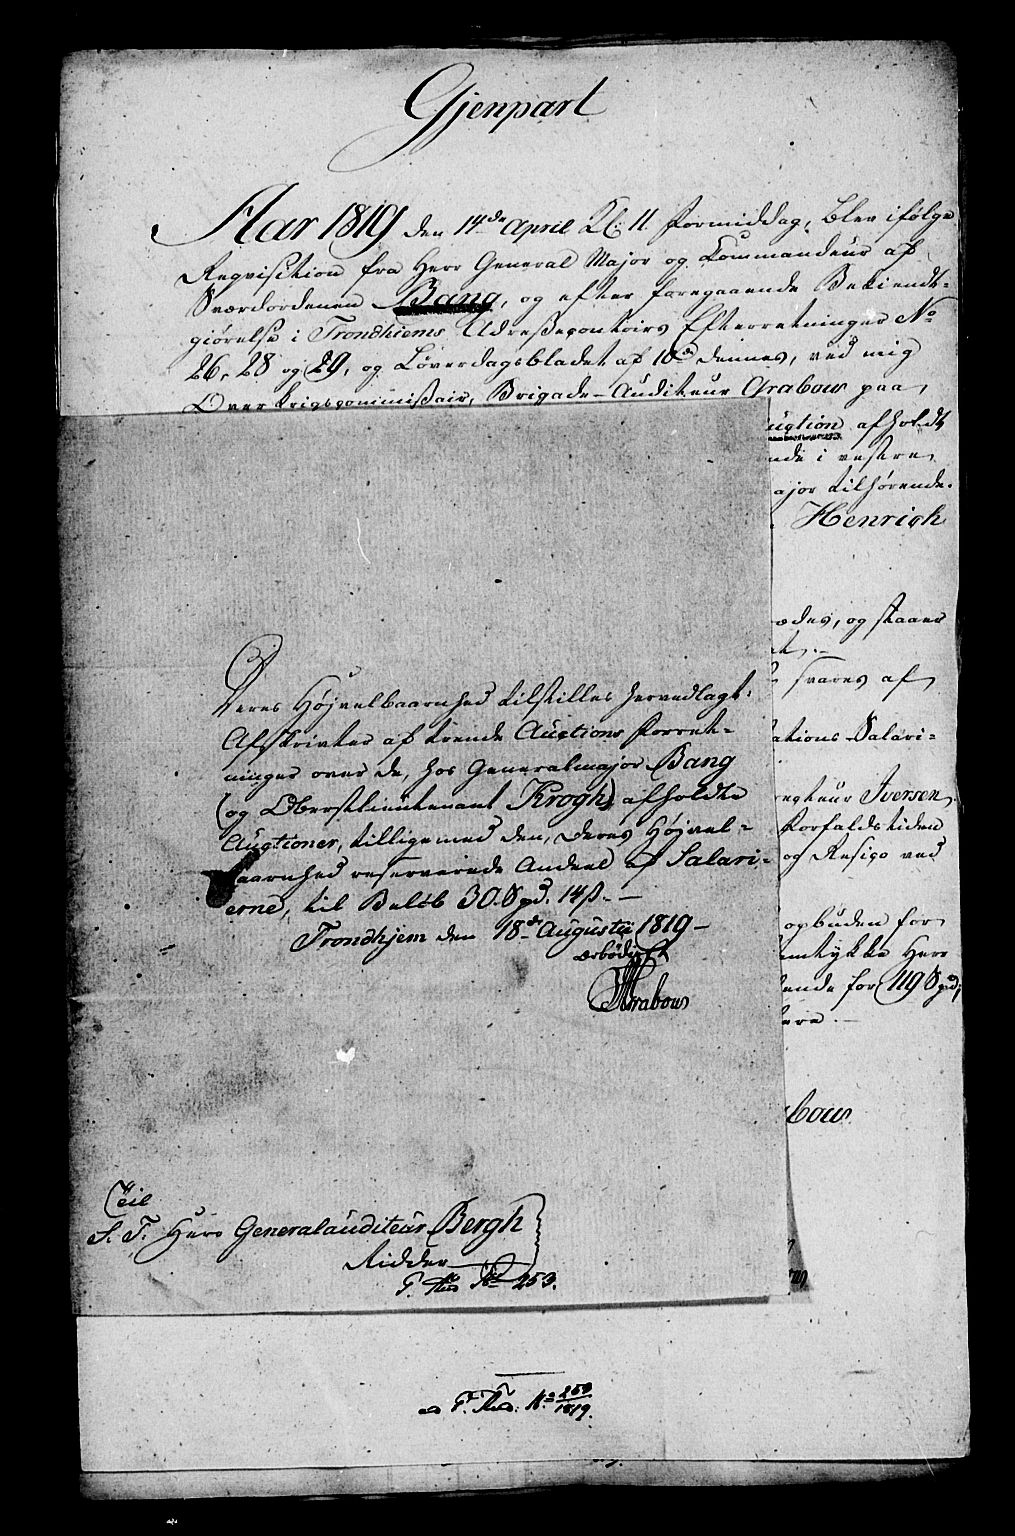 Gjenpart
Aar 1819 den 14de April Kl: 11 Formiddag, blev ifølge
Reqvisition fra Herr General Major og Commandeur af
Sværdordenen Bang, og efter foregaaende Bekiendt-
giørelse i Trondhiems Adressecontoirs Efterretninger No
26, 28 og 29, og Løverdagsbladet af 10de dennes, ved mig
Over Krigscommissair, Brigade-Auditeur Grabow paa
Auction afholdt
i vestre
ajor tilhørende
Henrich
ædes, og staaer
svares af
ations-Salari-
Iversen
Forfaldstiden
og Resigo ved
opbuden for
Herr
ende for 119 Spd,
bow
Deres Højvelbaarnhed tilstilles hervedlagt
Afskrivter af trende Auctions Forret-
ninger over de, hos Generalmajor Bang
(og Oberstlieutenant Krogh) afholdte
Auctioner, tilligemed den, Deres Højvel-
baarnhed reserverede Andeel af Salari-
erne, til Beløb 30. Spd. 14 s. —
Trondhjem den 18de Augusti 1819 —
ærbødigst
Grabow
Til
S. T. Herr Generalauditeur Bergh
Ridder
No 253.
No 253/1819.